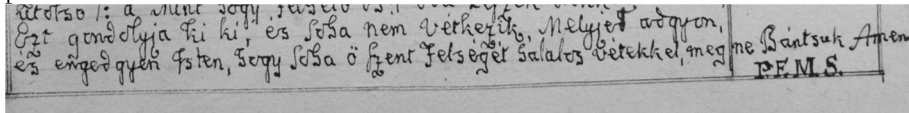 a mint hogy
Ezt gondolyja ki ki, és soha nem vétkezik, Melyjet adgyon,
és engedgyen Isten, hogy soha ö Szent Felségét halálos vétekkel, meg ne Bántsuk Amen
P.F.M.S.